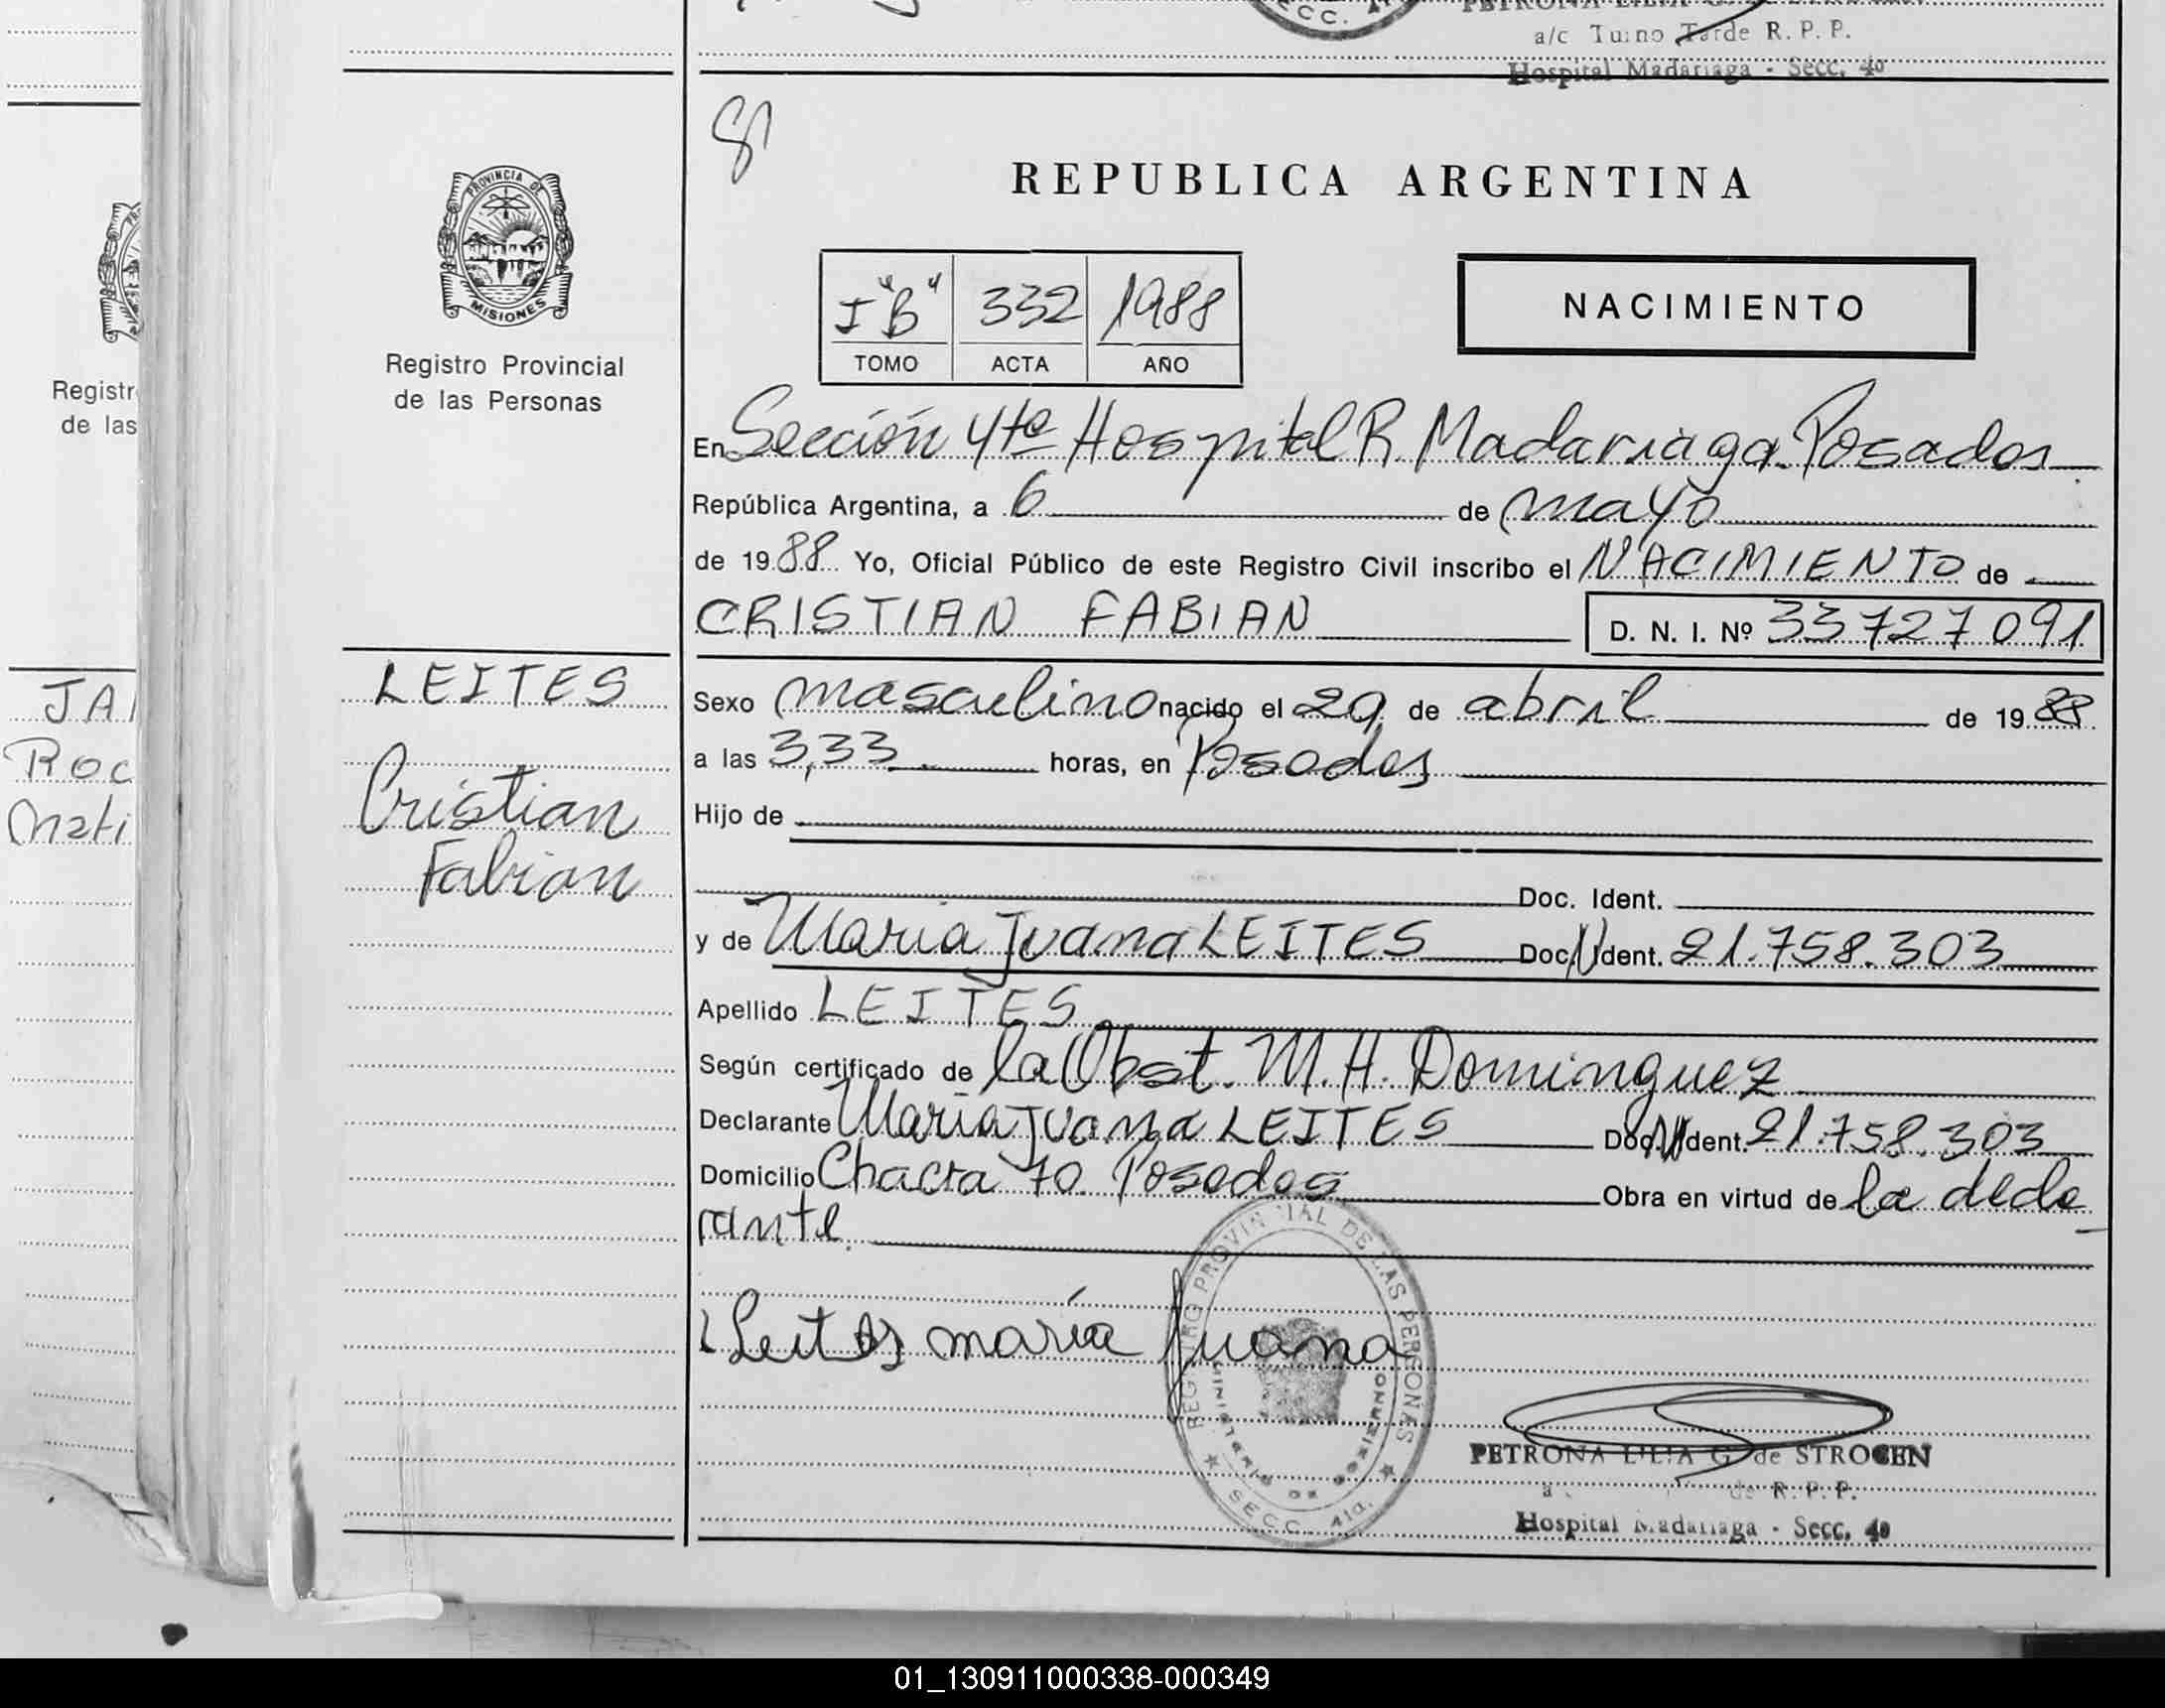 a/c Turno Tarde R. P. P.
Hospital Madariaga - Secc. 4a
REPUBLICA ARGENTINA
PROVINCIA DE
MISIONES
Registro Provincial
de las Personas
I "B" 332 1988
TOMO ACTA AÑO
NACIMIENTO
Registr
de las
En Sección 4ta Hospital R. Madariaga. Posadas
República Argentina, a 6 de mayo
de 1988 Yo, Oficial Público de este Registro Civil inscribo el NACIMIENTO de
CRISTIAN FABIAN D. N. I. Nº 33727091
LEITES
Cristian
Fabian
JA
Roc
Mati
Sexo masculino nacido el 29 de abril de 1988
a las 3,33 horas, en Posadas
Hijo de
Doc. Ident.
y de Maria Juana LEITES Doc. Ident. 21.758.303
Apellido LEITES
Según certificado de la Obst. M. H. Dominguez
Declarante Maria Juana LEITES Doc. Ident. 21.758.303
Domicilio Chacra 70. Posadas Obra en virtud de la decla
rante.
Leites maría Juana
REGISTRO PROVINCIAL DE LAS PERSONAS
MINISTERIO DE GOBIERNO
SECC. 4ta.
PETRONA LILIA G. de STROGEN
de R. P. P.
Hospital Madariaga - Secc. 4a
01_130911000338-000349